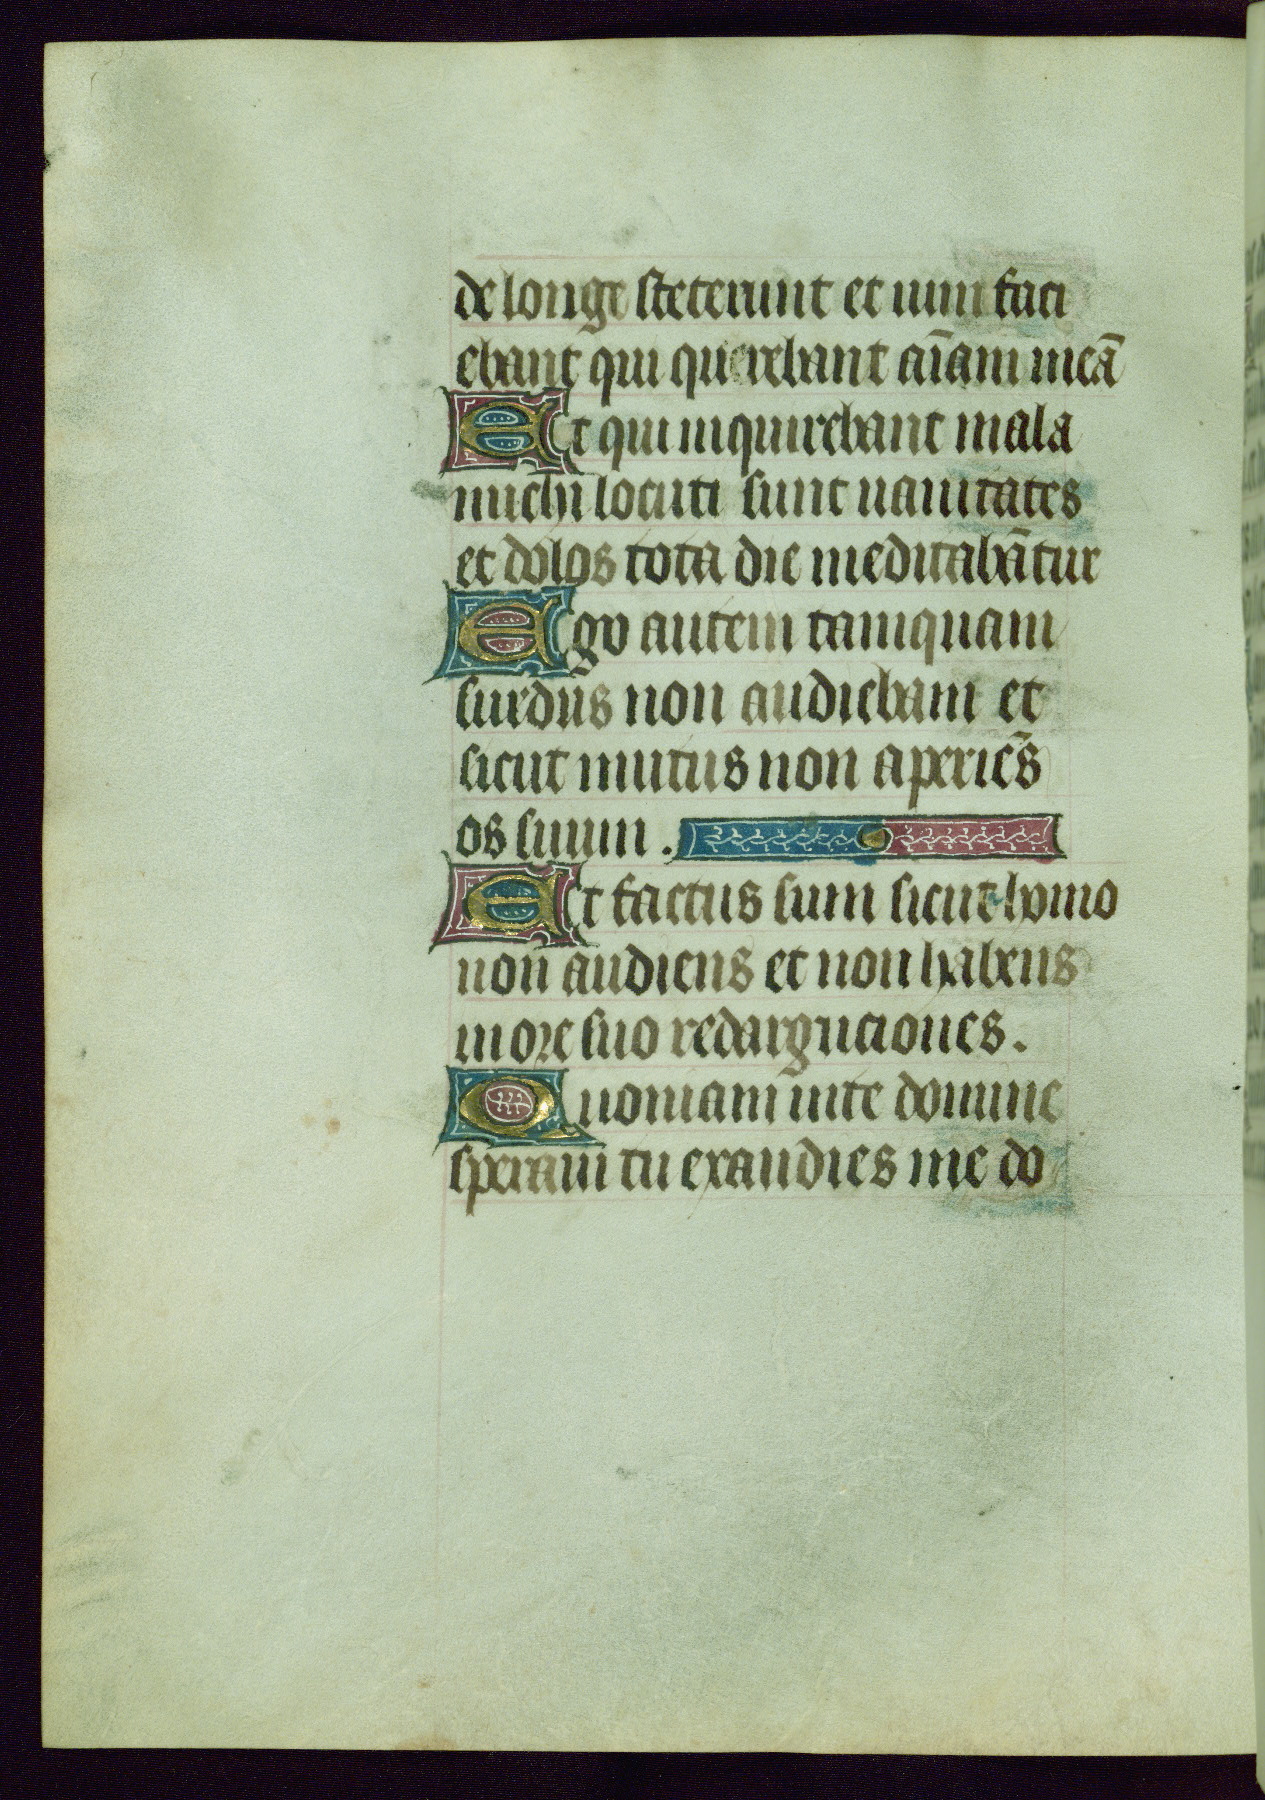 de longe steterunt et uim faci
ebant qui querebant aīam meā
Et qui inquirebant mala
michi locuti sunt uanitates
et dolos tota die meditabātur
Ego autem tamquam
surdus non audiebam et
sicut mutus non aperiēs
os suum .
Et factus sum sicut homo
non audiens et non habens
in ore suo redarguciones.
Quoniam in te domine
speraui tu exaudies me do